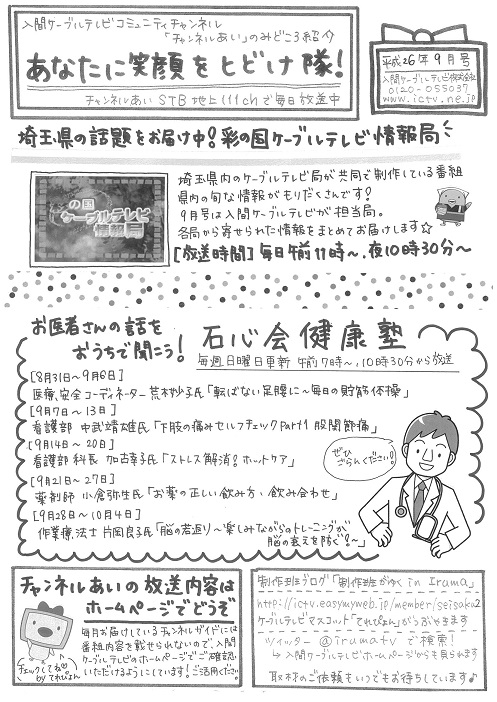 入間ケーブルテレビコミュニティチャンネル
「チャンネルあい」のみどころ紹介
あなたに笑顔をとどけ隊!
チャンネルあい STB 地上111chで毎日放送中
平成26年9月号
入間ケーブルテレビ株式会社
0120-055037
www.ictv.ne.jp
埼玉県の話題をお届け中!彩の国ケーブルテレビ情報局
の国
ケーブルテレビ
情報局
埼玉県内のケーブルテレビ局が共同で制作している番組
県内の旬な情報がもりだくさんです!
9月号は入間ケーブルテレビが担当局。
各局から寄せられた情報をまとめてお届けします☆
[放送時間]毎日午前11時〜、夜10時30分〜
お医者さんの話を
おうちで聞こう!
石心会健康塾
毎週日曜日更新 午前7時〜、10時30分から放送
[8月31日〜9月6日]
医療安全コーディネーター 荒木妙子氏「転ばない足腰に〜毎日の貯筋体操」
[9月7日〜13日]
看護部 中武靖雄氏「下肢の痛みセルフチェックPart1 股関節痛」
[9月14日〜20日]
看護部 科長 加古幸子氏「ストレス解消!ホットケア」
[9月21日〜27日]
薬剤師 小倉弥生氏「お薬の正しい飲み方、飲み合わせ」
[9月28日〜10月4日]
作業療法士 片岡良子氏「脳の若返り〜楽しみながらのトレーニングが
脳の衰えを防ぐ!〜」
ぜひ
ごらんください!
チャンネルあいの放送内容は
ホームページでどうぞ
毎月お届けしているチャンネルガイドには
番組内容を載せられないので、入間
ケーブルテレビのホームページでご確認
いただけるようにしています!ご活用ください。
チェックしてね♡
by てれぴょん
制作班ブログ「制作班がゆく in Irama」
http://ictv.easymyweb.jp/member/seisaku2
ケーブルテレビマスコット「てれぴょん」がつぶやきます
ツイッター @irumatv で検索!
→入間ケーブルテレビホームページからも見られます
取材のご依頼もいつでもお待ちしています♪